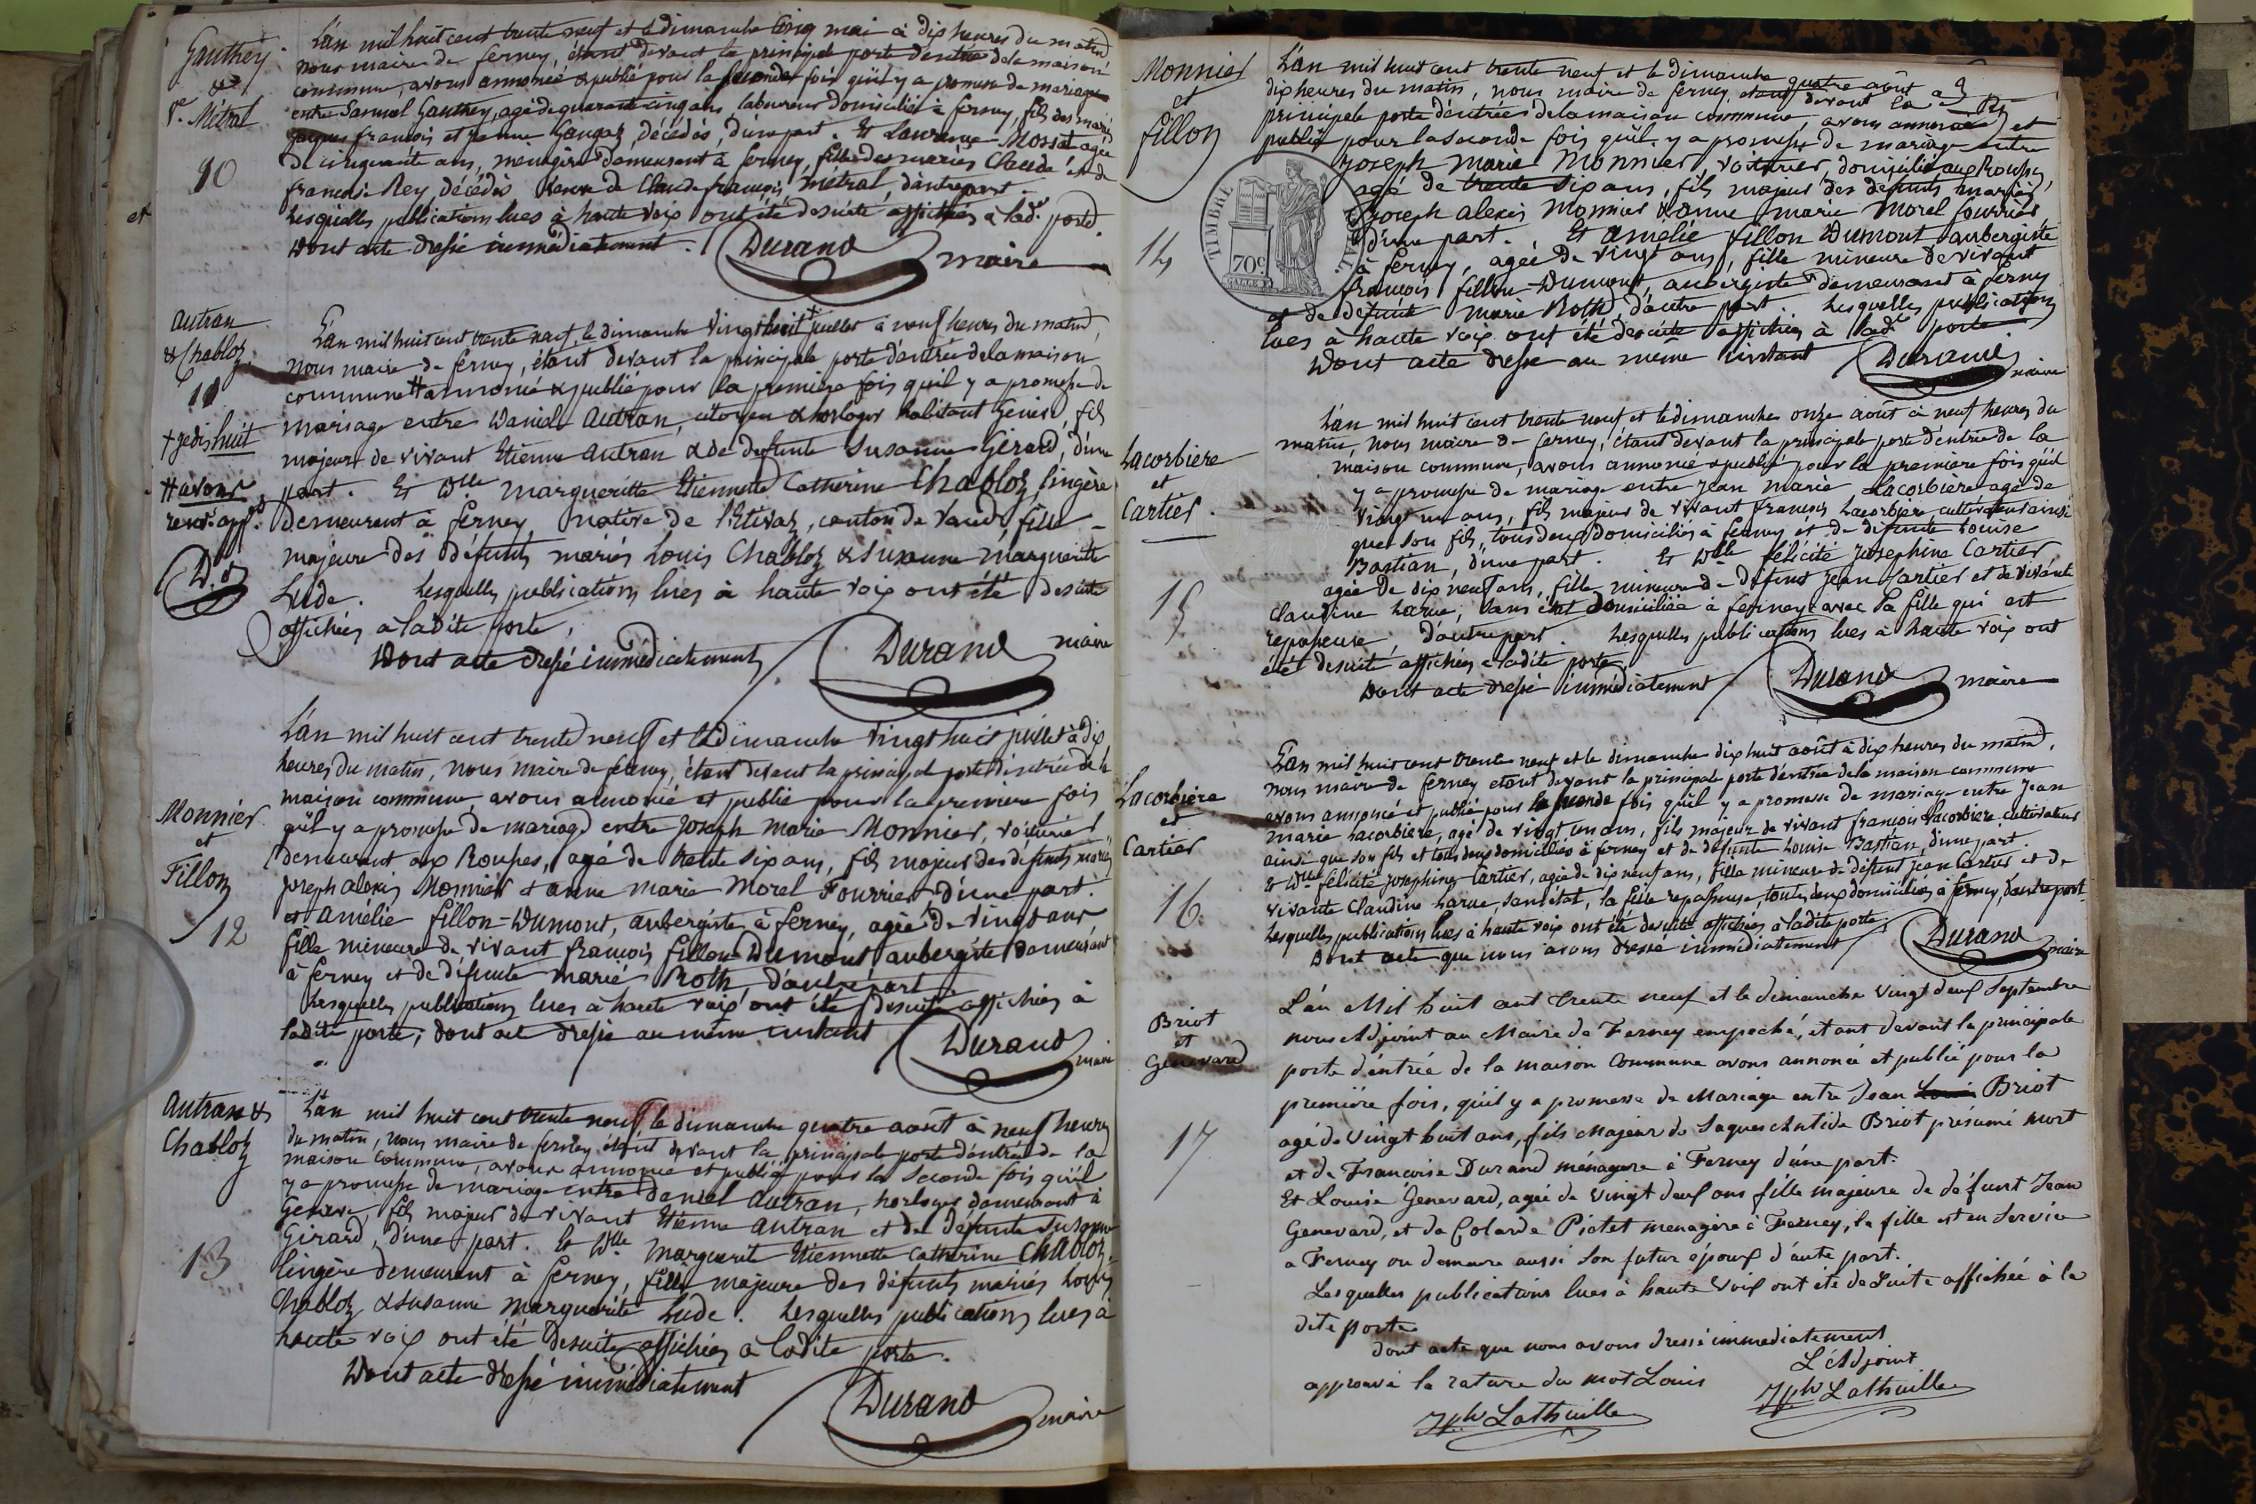 Gauthey
&
Ve. Métral
10
L'an mil huit cent trente neuf et le dimanche cinq mai à dix heures du matin
nous maire de ferney, étant devant la principale porte d'entrée de la maison
commune, avons annoncé & publié pour la seconde fois qu'il y a promesse de mariage
entre Samuel Gauthey, agé de quarante cinq ans, laboureur domicilié à ferney, fils des mariés
jaques françois et jeanne Gangaz, décédés, d'une part. Et Laurence Mossat agée
de cinquante ans, ménagère demeurant à ferney, fille des mariés Claude et de
françoise Rey décédés veuve de Claude françois métral, d'autre part.
Lesquelles publications lues à haute voix ont été desuite affichées à lade. porte.
Dont acte dressé immédiatement.
Durand maire
autran
& Chabloz
11
+ je dis huit
# avons
renv. app.
D.d
L'an mil huit cent trente neuf, le dimanche vingt huit + juillet à neuf heures du matin,
nous maire de ferney, étant devant la principale porte d'entrée de la maison
commune # annoncé & publié pour la première fois qu'il y a promesse de
mariage entre Daniel autran, citoyen & horloger habitant Genève, fils
majeur de vivant Etienne autran & de defunte Susanne Girard, d'une
part. Et Dlle Margueritte Etiennette Catherine Chabloz, lingère
demeurant à ferney, native de l'Etivaz, canton de Vaud, fille
majeure des défunts mariés Louis Chabloz & Susanne marguerite
Lude. Lesquelles publications lues à haute voix ont été desuite
affichées à ladite porte,
Dont acte dressé immédiatement
Durand maire
Monnier
et
Fillon
12
L'an mil huit cent trente neuf et le dimanche vingt huit juillet à dix
heures du matin, nous maire de ferney, étant devant la principale porte d'entrée de la
maison commune, avons annoncé et publié pour la première fois
qu'il y a promesse de mariage entre joseph marie Monnier, voiturier
demeurant aux Rousses, agé de trente six ans, fils majeur des défunts mariés
joseph alexis Monnier & anne marie Morel Fourrier d'une part.
et amélie fillon-Dumont, aubergiste à ferney, agée de vingt ans
fille mineure de vivant françois fillon-Dumont aubergiste demeurant
à ferney et de défunte marie Roth, d'autre part.
Lesquelles publications lues à haute voix ont été desuite affichées à
ladite porte; dont acte dressé au même instant
Durand maire
autran &
Chabloz
13
L'an mil huit cent trente neuf le dimanche quatre août à neuf heures
du matin, nous maire de ferney étant devant la principale porte d'entrée de la
maison commune, avons annoncé et publié pour la seconde fois qu'il
y a promesse de mariage entre daniel autran, horloger demeurant à
Genève, fils majeur de vivant Etienne autran et de défunte Susanne
Girard, d'une part. Et Dlle Marguerite Etiennette Catherine Chabloz
lingère demeurant à ferney, fille majeure des défunts mariés Louis
Chabloz & susanne marguerite Lude. Lesquelles publications lues à
haute voix ont été desuite affichées à ladite porte.
Dont acte dressé immédiatement
Durand maire
Monnier
et
fillon
14
TIMBRE ROYAL
70c
L'an mil huit cent trente neuf et le dimanche quatre août à
dix heures du matin, nous maire de ferney, étant devant la
principale porte d'entrée de la maison commune avons annoncé et
publié pour la seconde fois qu'il y a promesse de mariage entre
joseph marie Monnier, voiturier, domicilié aux Rousses,
agé de trente six ans, fils majeur des défunts mariés
joseph alexis Monnier & anne marie Morel fourrier
d'une part. Et amélie fillon Dumont aubergiste
à ferney, agée de vingt ans, fille mineure de vivant
françois fillon-Dumont, aubergiste demeurant à ferney
et de défunte marie Roth, d'autre part. Lesquelles publications
lues à haute voix ont été desuite affichées à lade porte.
Dont acte dressé au même instant
Durand maire
Lacorbière
et
Cartier.
15
L'an mil huit cent trente neuf et le dimanche onze août à neuf heures du
matin, nous maire de ferney, étant devant la principale porte d'entrée de la
maison commune, avons annoncé & publié pour la première fois qu'il
y a promesse de mariage entre jean marie Lacorbière agé de
vingt un ans, fils majeur de vivant françois Lacorbière, cultivateur ainsi
que son fils, tous deux domiciliés à ferney et de défunte Louise
Bastian, d'une part. Et Dlle félicité josephine Cartier
agée de dix neuf ans, fille mineure de défunt jean Cartier et de vivante
Claudine Larue, sans état domiciliée à ferney avec sa fille qui est
repasseuse, d'autre part. Lesquelles publications lues à haute voix ont
été desuite affichées à ladite porte
Dont acte dressé immédiatement
Durand maire
Lacorbière
et
Cartier
16.
L'an mil huit cent trente neuf et le dimanche dix huit août à dix heures du matin,
nous maire de ferney étant devant la principale porte d'entrée de la maison commune
avons annoncé et publié pour la seconde fois qu'il y a promesse de mariage entre jean
marie Lacorbière, agé de vingt un ans, fils majeur de vivant françois Lacorbière cultivateur
ainsi que son fils et tous deux domiciliés à ferney et de défunte Louise Bastian, d'une part.
Et Dlle félicité josephine Cartier, agée de dix neuf ans, fille mineure de défunt jean Cartier et de
vivante Claudine Larue, sans état, la fille repasseuse, toutes deux domiciliées à ferney, d'autre part.
Lesquelles publications lues à haute voix ont été desuite affichées à ladite porte.
Dont acte que nous avons dressé immédiatement
Durand maire
Briot
et
Genevard
17
L'an Mil huit cent trente neuf et le dimanche vingt deux Septembre
nous Adjoint au Maire de Ferney empeché, étant devant la principale
porte d'entrée de la maison Commune avons annoncé et publié pour la
première fois, qu'il y a promesse de Mariage entre Jean Louis Briot
agé de Vingt huit ans, fils Majeur de Jaques Antide Briot présumé mort
et de Francoise Durand ménagere à Ferney d'une part.
Et Louise Genevard, agée de Vingt deux ans fille majeure de défunt Jean
Genevard, et de Colarde Pictet menagère à Ferney, la fille est en service
a Ferney ou demeure aussi son futur époux d'autre part.
Lesquelles publications lues à haute Voix ont été de Suite affichée à la
dite porte
dont acte que nous avons dressé immediatement
L'Adjoint
approuvé la rature du mot Louis
Jph Lathuille
Jph Lathuille